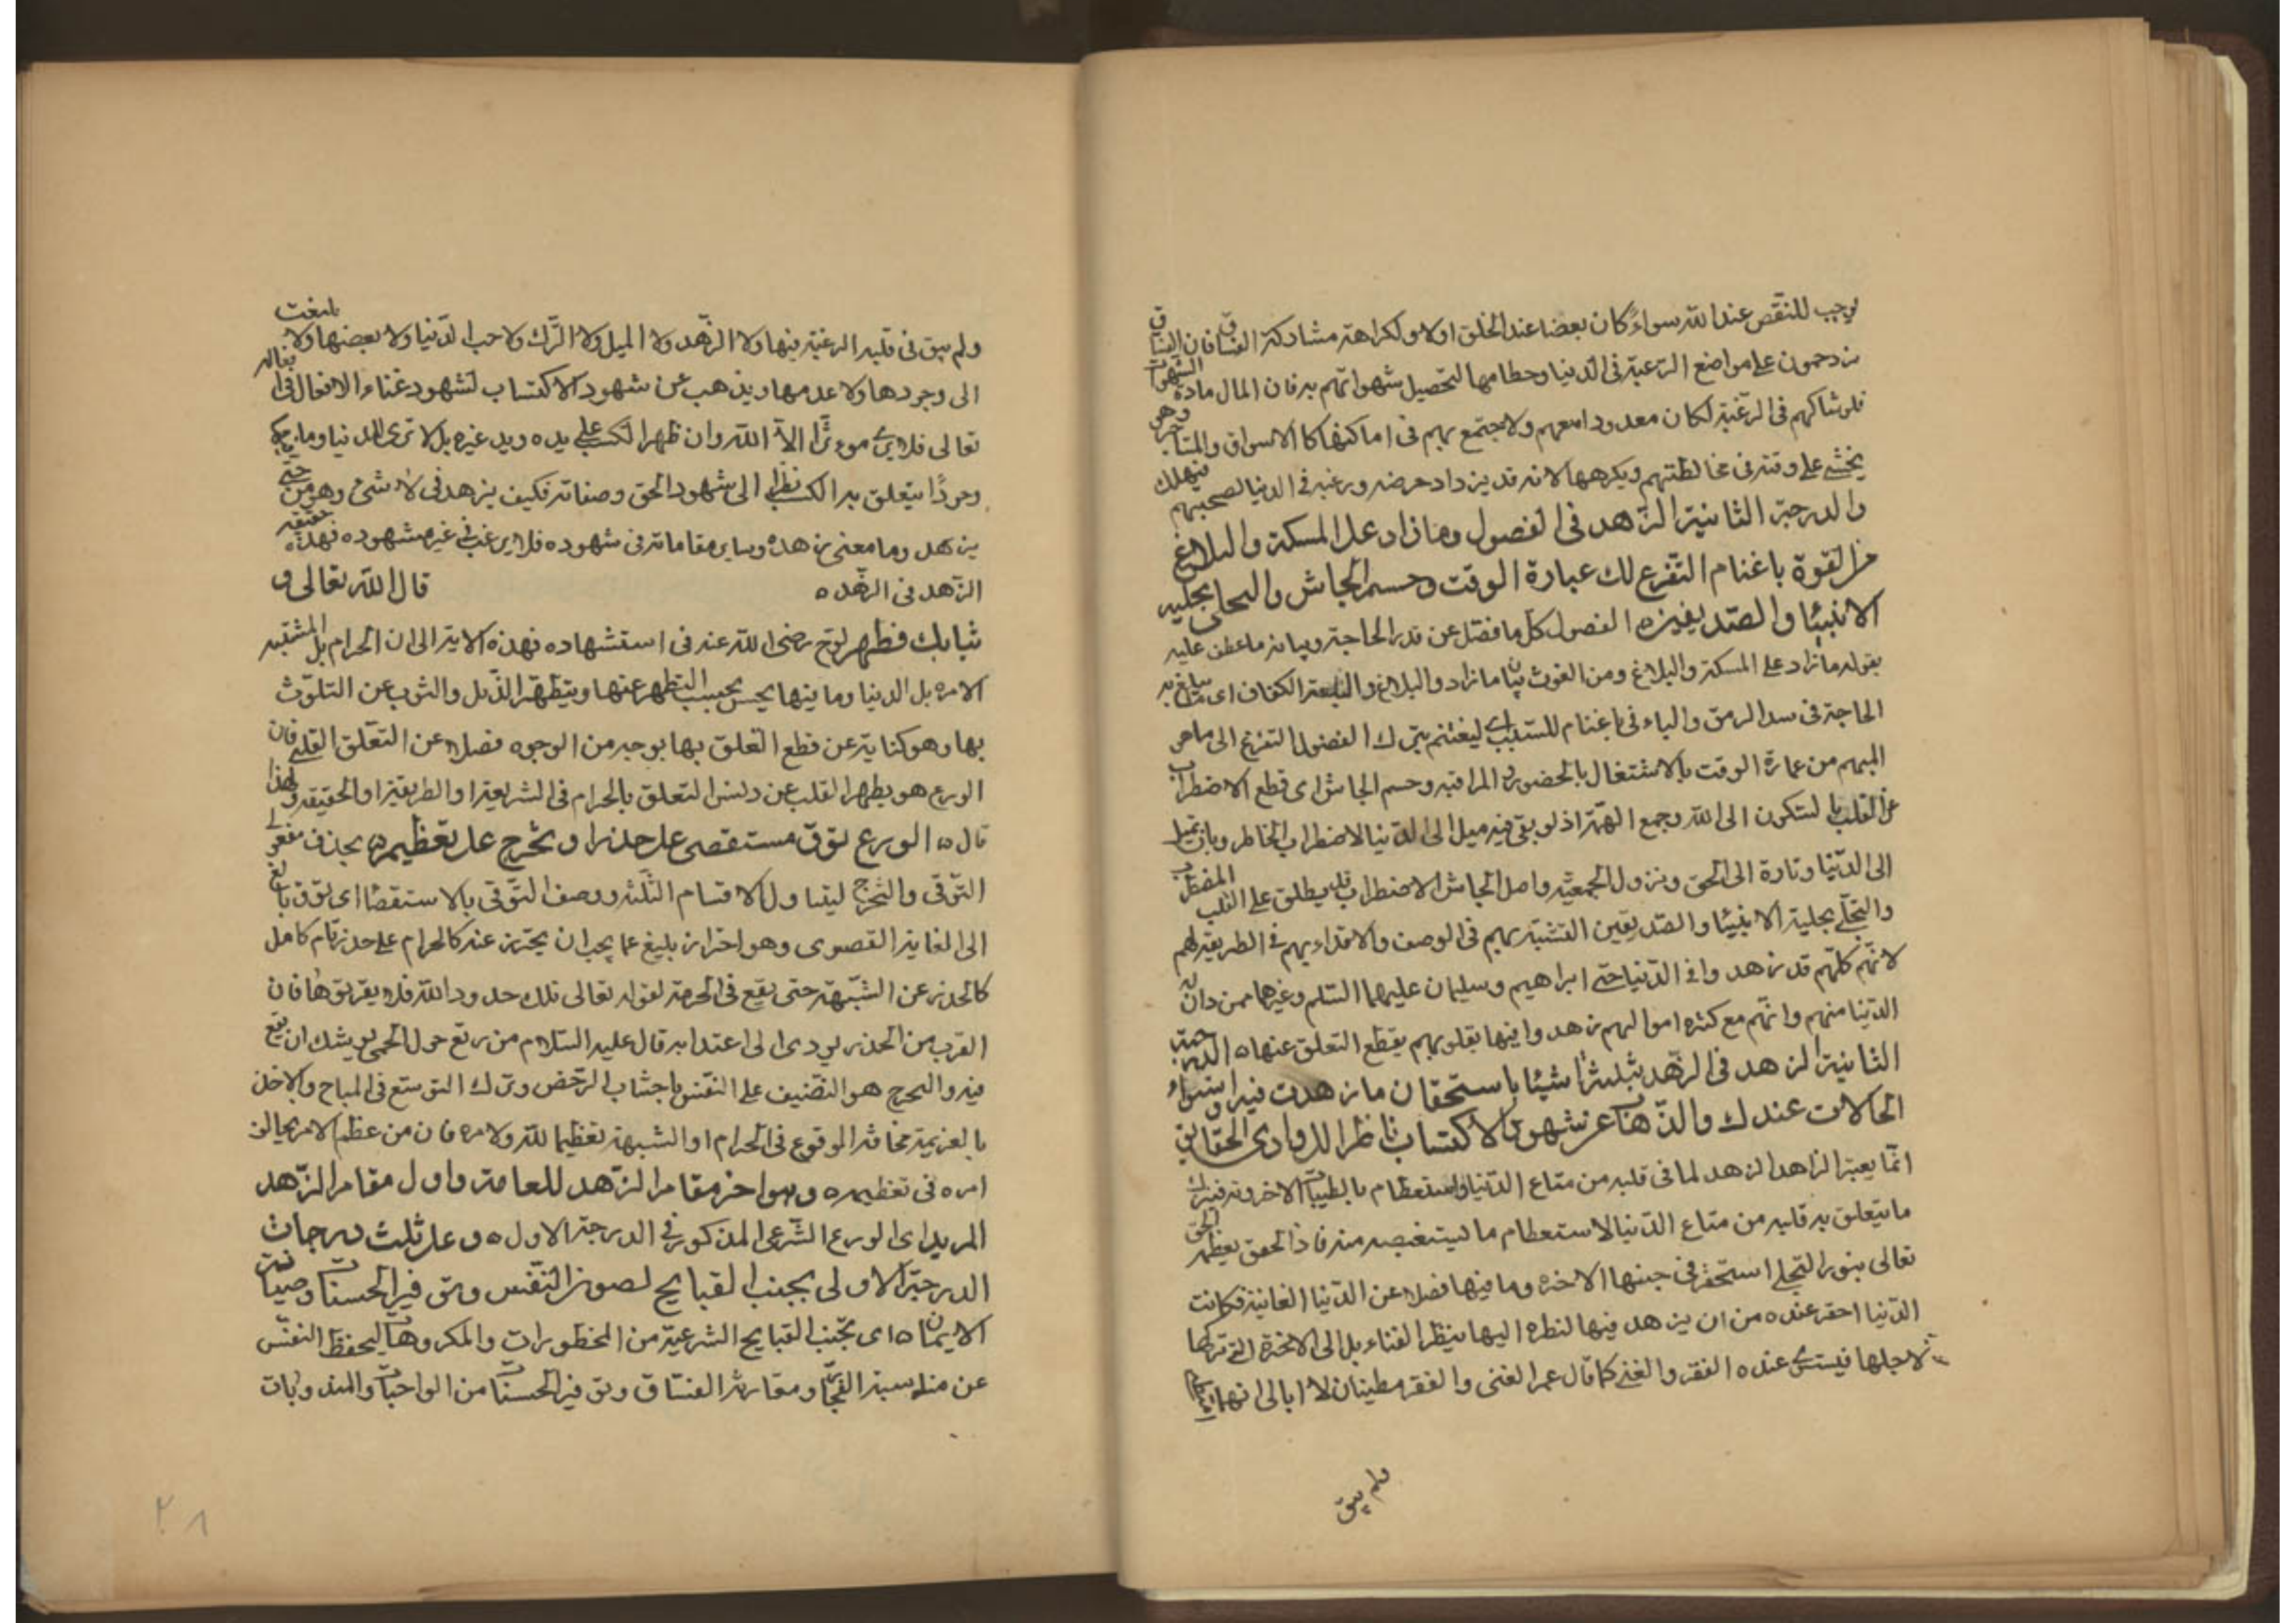 يوجب للنقص عند الله سواء كان بعضا عند الخلق اولا ولكراهة مشاركة الفساق فان الفساق
يزدحمون على مواضع الرغبة في الدنيا وحطامها لتحصيل شهواتهم به فان المال مادة الشهوات
فلو شاركهم في الرغبة لكان معدودا معهم ولاجتمع بهم في اماكنها كالاسواق والمتاجر وهو
يخشى على وقته في مخالطتهم ويكرهها لانه قد يزداد حرضه ورغبه في الدنيا لصحبتهم فيهلك
والدرجة الثانية الزهد في الفضول وما زاد على المسكة والبلاغ
من القوة باغتنام التفرغ لك عبارة الوقت وحسم الجاش والتحلي بحلية
الانبيا والصديقين ه الفضول كل ما فضل عن قدر الحاجة وبيانه ما عطف عليه
بقوله ما زاد على المسكة والبلاغ ومن القوت بيان ما زاد والبلاغ والبلغة الكفاف اى ما يبلغ به
الحاجة في سد الرمق والباء في باغتنام للسببية اى ليغتنم بترك الفضول التفرغ الى ما هو
المهم من عمارة الوقت بالاشتغال بالحضور والمراقبه وحسم الجاش اى قطع الاضطراب
عن القلب بالسكون الى الله وجمع الهمة اذ لو بقى فيه ميل الى الدنيا لاضطراب الخاطر وبان تميل
الى الدنيا وتارة الى الحق ونزول الجمعية واصل الجاش الاضطراب قد يطلق على القلب المضطرب
والتحلى بحلية الانبيا والصديقين التشبه بهم في الوصف والاقتداء بهم في الطريقة لهم
لانهم كلهم قد زهدوا في الدنيا حتى ابراهيم وسليمان عليهما السلم وغيرهما ممن دان له
الدنيا منهم وانهم مع كثره اموالهم زهدوا فيها بقلوبهم بقطع التعلق عنها ه الدرجة
الثانية الزهد في الزهد بثلثة اشيا باستحقار ما زهدت فيه واستواء
الحالات عندك والذهاب عن شهود الاكتساب ناظرا الى وادى الحقايق
انما يعبر الزاهد الزهد لما في قلبه من متاع الدنيا واستعظام بالطيبات الاخرويه فترك
ما يتعلق به قلبه من متاع الدنيا لاستعظام ما يستنغصه منه فاذا تحقق بعظمة الحق
تعالى بنور التجلى استحقر في جنبها الاخره وما فيها فضلا عن الدنيا الفانية فكانت
الدنيا احقر عنده من ان يزهد فيها لنظره اليها بنظر الفناء بل الى الاخرة التى تركها
لاجلها فيستوى عنده الفقر والغنى كما قال عمر الغنى والفقر مطيتان لا ابالى ايهما
ولم يبق
ولم يبق في قلبه الرغبة فيها ولا الزهد ولا الميل ولا الترك ولا حب الدنيا ولا بعضها ولا يلتفت
الى وجودها ولا عدمها ويذهب عن شهود الاكتساب لشهود غناء الافعال في افعاله
تعالى فلا يرى موءثرا الا الله وان ظهرا لكسب على يده ويد غيره بل لا ترى للدنيا وما
وجودا يتعلق به الكسب نظرا الى شهود الحق وصفاته فكيف يزهد في لا شئ وهو من حتى
يزهد وما معنى زهده وساير مقاماته في شهوده فلا يرغب في غير مشهوده فهذه حقيقه
الزهد في الزهد ه قال الله تعالى و
ثيابك فطهر لوح رضى الله عنه في استشهاده فهذه الاية الى ان الحرام بل المشتبه
الامر بل الدنيا وما فيها نجس يجب التطهر عنها ويتطهر الذيل والثوب عن التلوث
بها وهو كناية عن قطع التعلق بها بوجه من الوجوه فضلا عن التعلق القلبى فان
الورع هو يطهر القلب عن دنس التعلق بالحرام في الشريعة او الطريقة او الحقيقه ولهذا
قال ه الورع توق مستقصى على حذر او تحرج على تعظيم ه بحذف مفعولى
التوقى والتحرج ليتناول الاقسام الثلثه ووصف التوقى بالاستقصا اى توق بالغ
الى الغاية القصوى وهو احتراز بليغ عما يجب ان يحترز عنه كالحرام على حذر تام كامل
كالحذر عن الشبهة حتى يقع في الحرمة لقوله تعالى تلك حدود الله فلا يقربوها فان
القرب من الحذر يودى الى اعتدا به قال عليه السلام من رتع حول الحمى يوشك ان يقع
فيه والتحرج هو التضنيف على النفس باجتناب الرخص وترك التوسع في المباح والاخذ
بالعزيمة مخافة الوقوع في الحرام او الشبهة تعظيما لله ولامره فان من عظم الامر
امره في تعظيمه ه وهو اخر مقام الزهد للعامة واول مقام الزهد
المريد اى الورع الشرعى المذكور في الدرجة الاول ه وعلى ثلث درجات
الدرجة الاولى تجنب القبايح لصون النفس وتوفير الحسنات وصيانة
الايمان ه اى تجنب القبايح الشرعية من المحظورات والمكروهات ليحفظ النفس
عن مناسبة الفجار ومقارنة الفساق وتوفير الحسنات من الواجبات والمندوبات
٢١